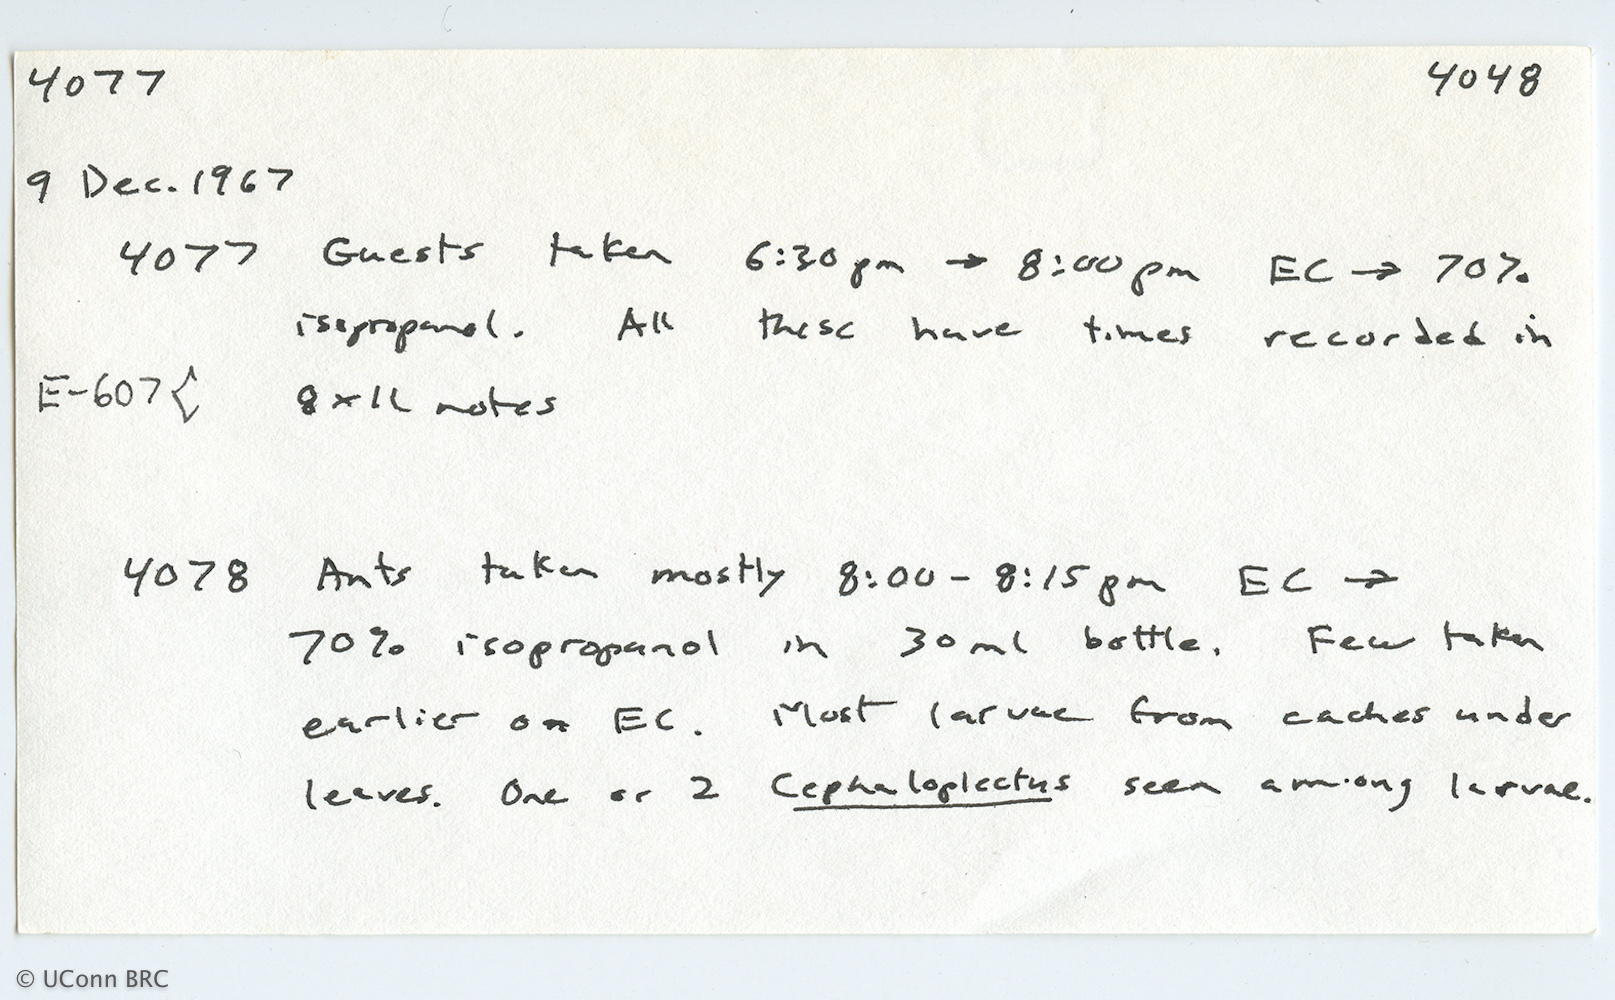 4077 4048
9 Dec. 1967
4077 Guests taken 6:30 pm → 8:00 pm EC → 70%
isopropanol. All these have times recorded in
E-607{ 8 x 11 notes
4078 Ants taken mostly 8:00 - 8:15 pm EC →
70% isopropanol in 30 ml bottle. Few taken
earlier on EC. Most larvae from caches under
leaves. One or 2 Cephaloplectus seen among larvae.
© UConn BRC